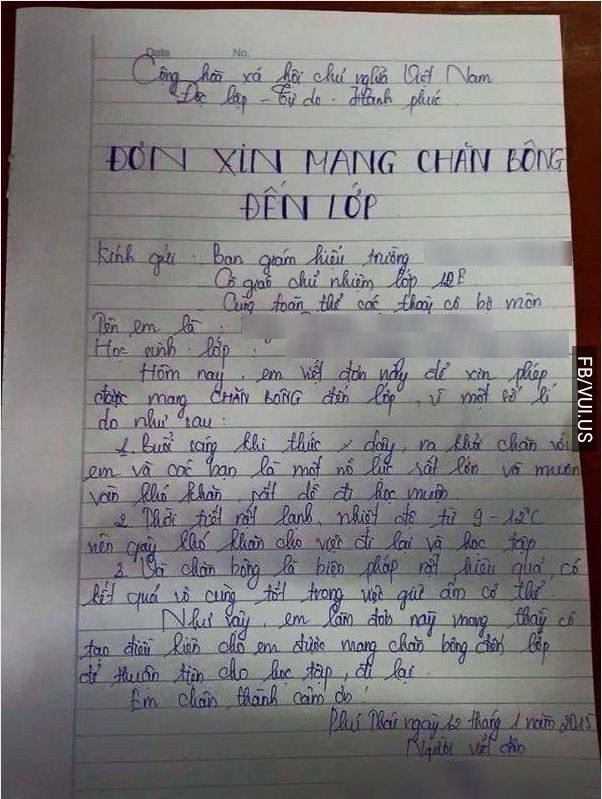 Date No.
Cộng hòa xã hội chủ nghĩa Việt Nam
Độc lập - Tự do - Hạnh phúc
ĐƠN XIN MANG CHĂN BÔNG
ĐẾN LỚP
Kính gửi : Ban giám hiệu trường
Cô giáo chủ nhiệm lớp 12E
Cùng toàn thể các thầy cô bộ môn
Tên em là :
Học sinh lớp :
Hôm nay, em viết đơn nầy để xin phép
được mang CHĂN BÔNG đến lớp, vì một số lí
do như sau :
1. Buổi sáng khi thức dậy, ra khỏi chăn với
em và các bạn là một nỗ lực rất lớn và muôn
vàn khó khăn, rất dễ đi học muộn.
2. Thời tiết rất lạnh, nhiệt độ từ 9-12°C
nên gây khó khăn cho việc đi lại và học tập.
3. Và chăn bông là biện pháp rất hiệu quả, có
kết quả vô cùng tốt trong việc giữ ấm cơ thể.
Như vậy, em làm đơn này mong thầy cô
tạo điều kiện cho em được mang chăn bông đến lớp
để thuận tiện cho học tập, đi lại.
Em chân thành cảm ơn !
Phú Thái ngày 12 tháng 1 năm 2015
Người viết đơn
FB/VUI.US